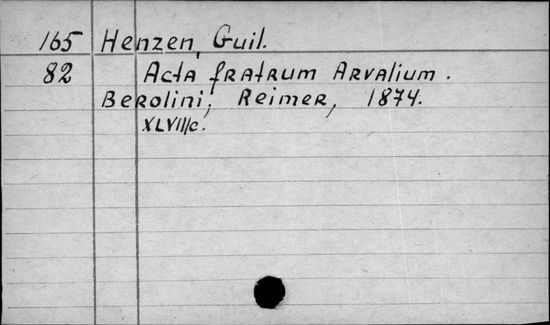 165 Henzen, Guil.
82 Acta fratrum Arvalium.
Berolini, Reimer, 1874.
XLVIII/c.